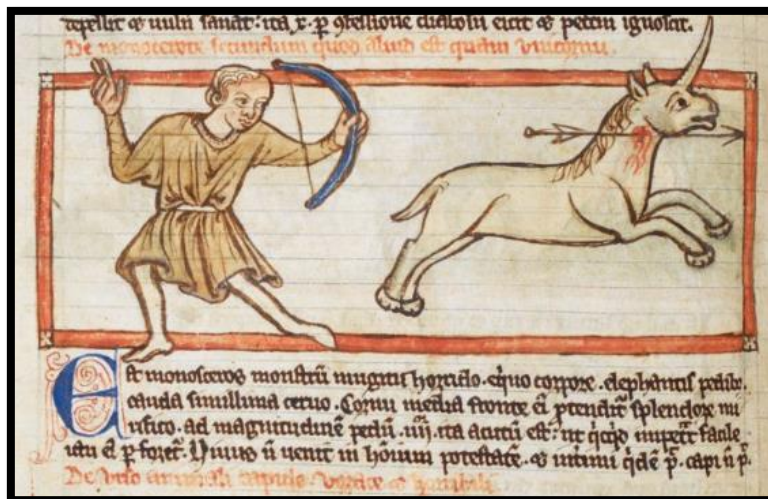 repellit & uuln sanat: ita x. p 9fessione diabolū eicit & peccm ignoscit.
De monocerote secundum quod aliud est quam unicornu.
Est monoceros monstrū mugitu horrido. equo corpore. elephantis pedibz.
cauda simillima ceruo. Cornu media fronte ei ptendit splendore mi
rifico. ad magnitudinē pedū .iiii. ita acutū est: ut qicqid impetit facile
ictu ei pforet. Viuus ñ uenit in hōium potestatē. & intimi qidē p. capi ñ p.
De urso animali